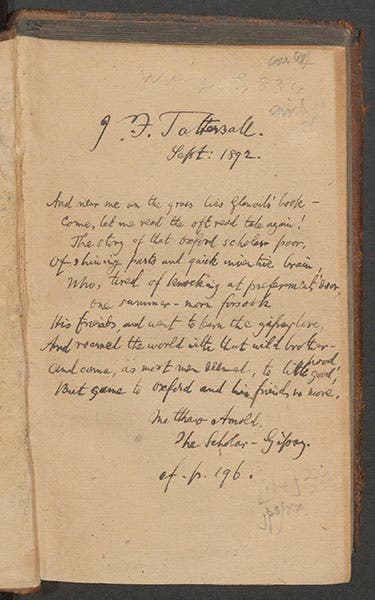 J F. Tattersall.
Sept: 1892.
And near me on the grass lies Glanvil's book –
Come, let me read the oft read tale again!
The story of that Oxford scholar poor,
Of shining parts and quick inventive brain,
Who, tired of knocking at preferment's door,
one summer-morn forsook
His friends, and went to learn the gipsy lore,
And roamed the world with that wild brother-
hood
And came, as most men deemed, to little good,
But came to Oxford and his friends no more.
Matthew Arnold.
The Scholar-Gipsy.
cf. p. 196.